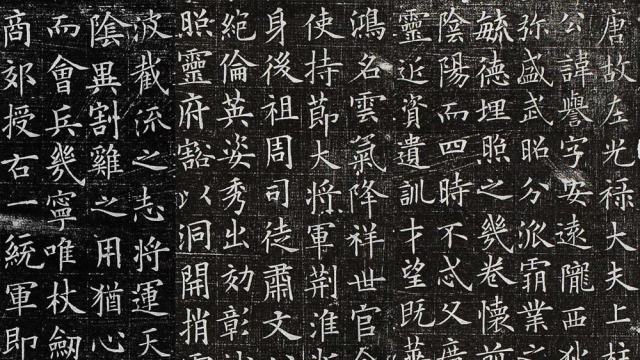 唐故左光禄大夫上柱
公諱譽字安遠隴西狄
弥盛武昭分派霸業之
毓德埋照之幾卷懷前
陰陽而四時不忒父度
靈近資遺訓才望既華
鴻名雲氣降祥世官
使持節大將軍荆淮
身後祖周司徒肅文以
絶倫英姿秀出効彰
照靈府豁以洞開捎
波截流之志將運天
陰異割雞之用猶心
而會兵幾寧唯杖劒
商郊授右一統軍即